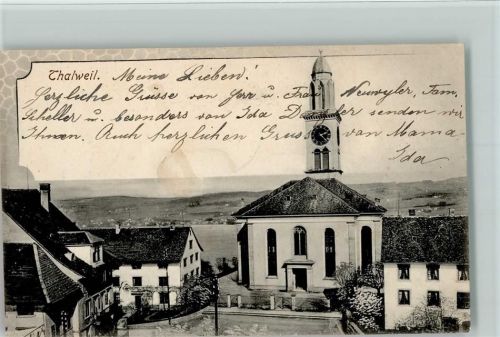 Thalweil.
Meine Lieben!
Herzliche Grüsse von Herr u. Frau Neuwyler, Fam.
Scheller u. besonders von Ida senden wir
Ihnen. Auch herzlichen Gruss von Mama
Ida